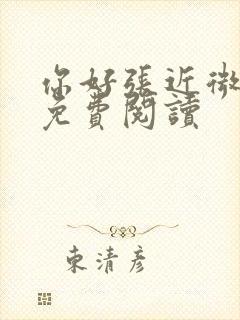 你好張近微
免費閱讀
東清彥